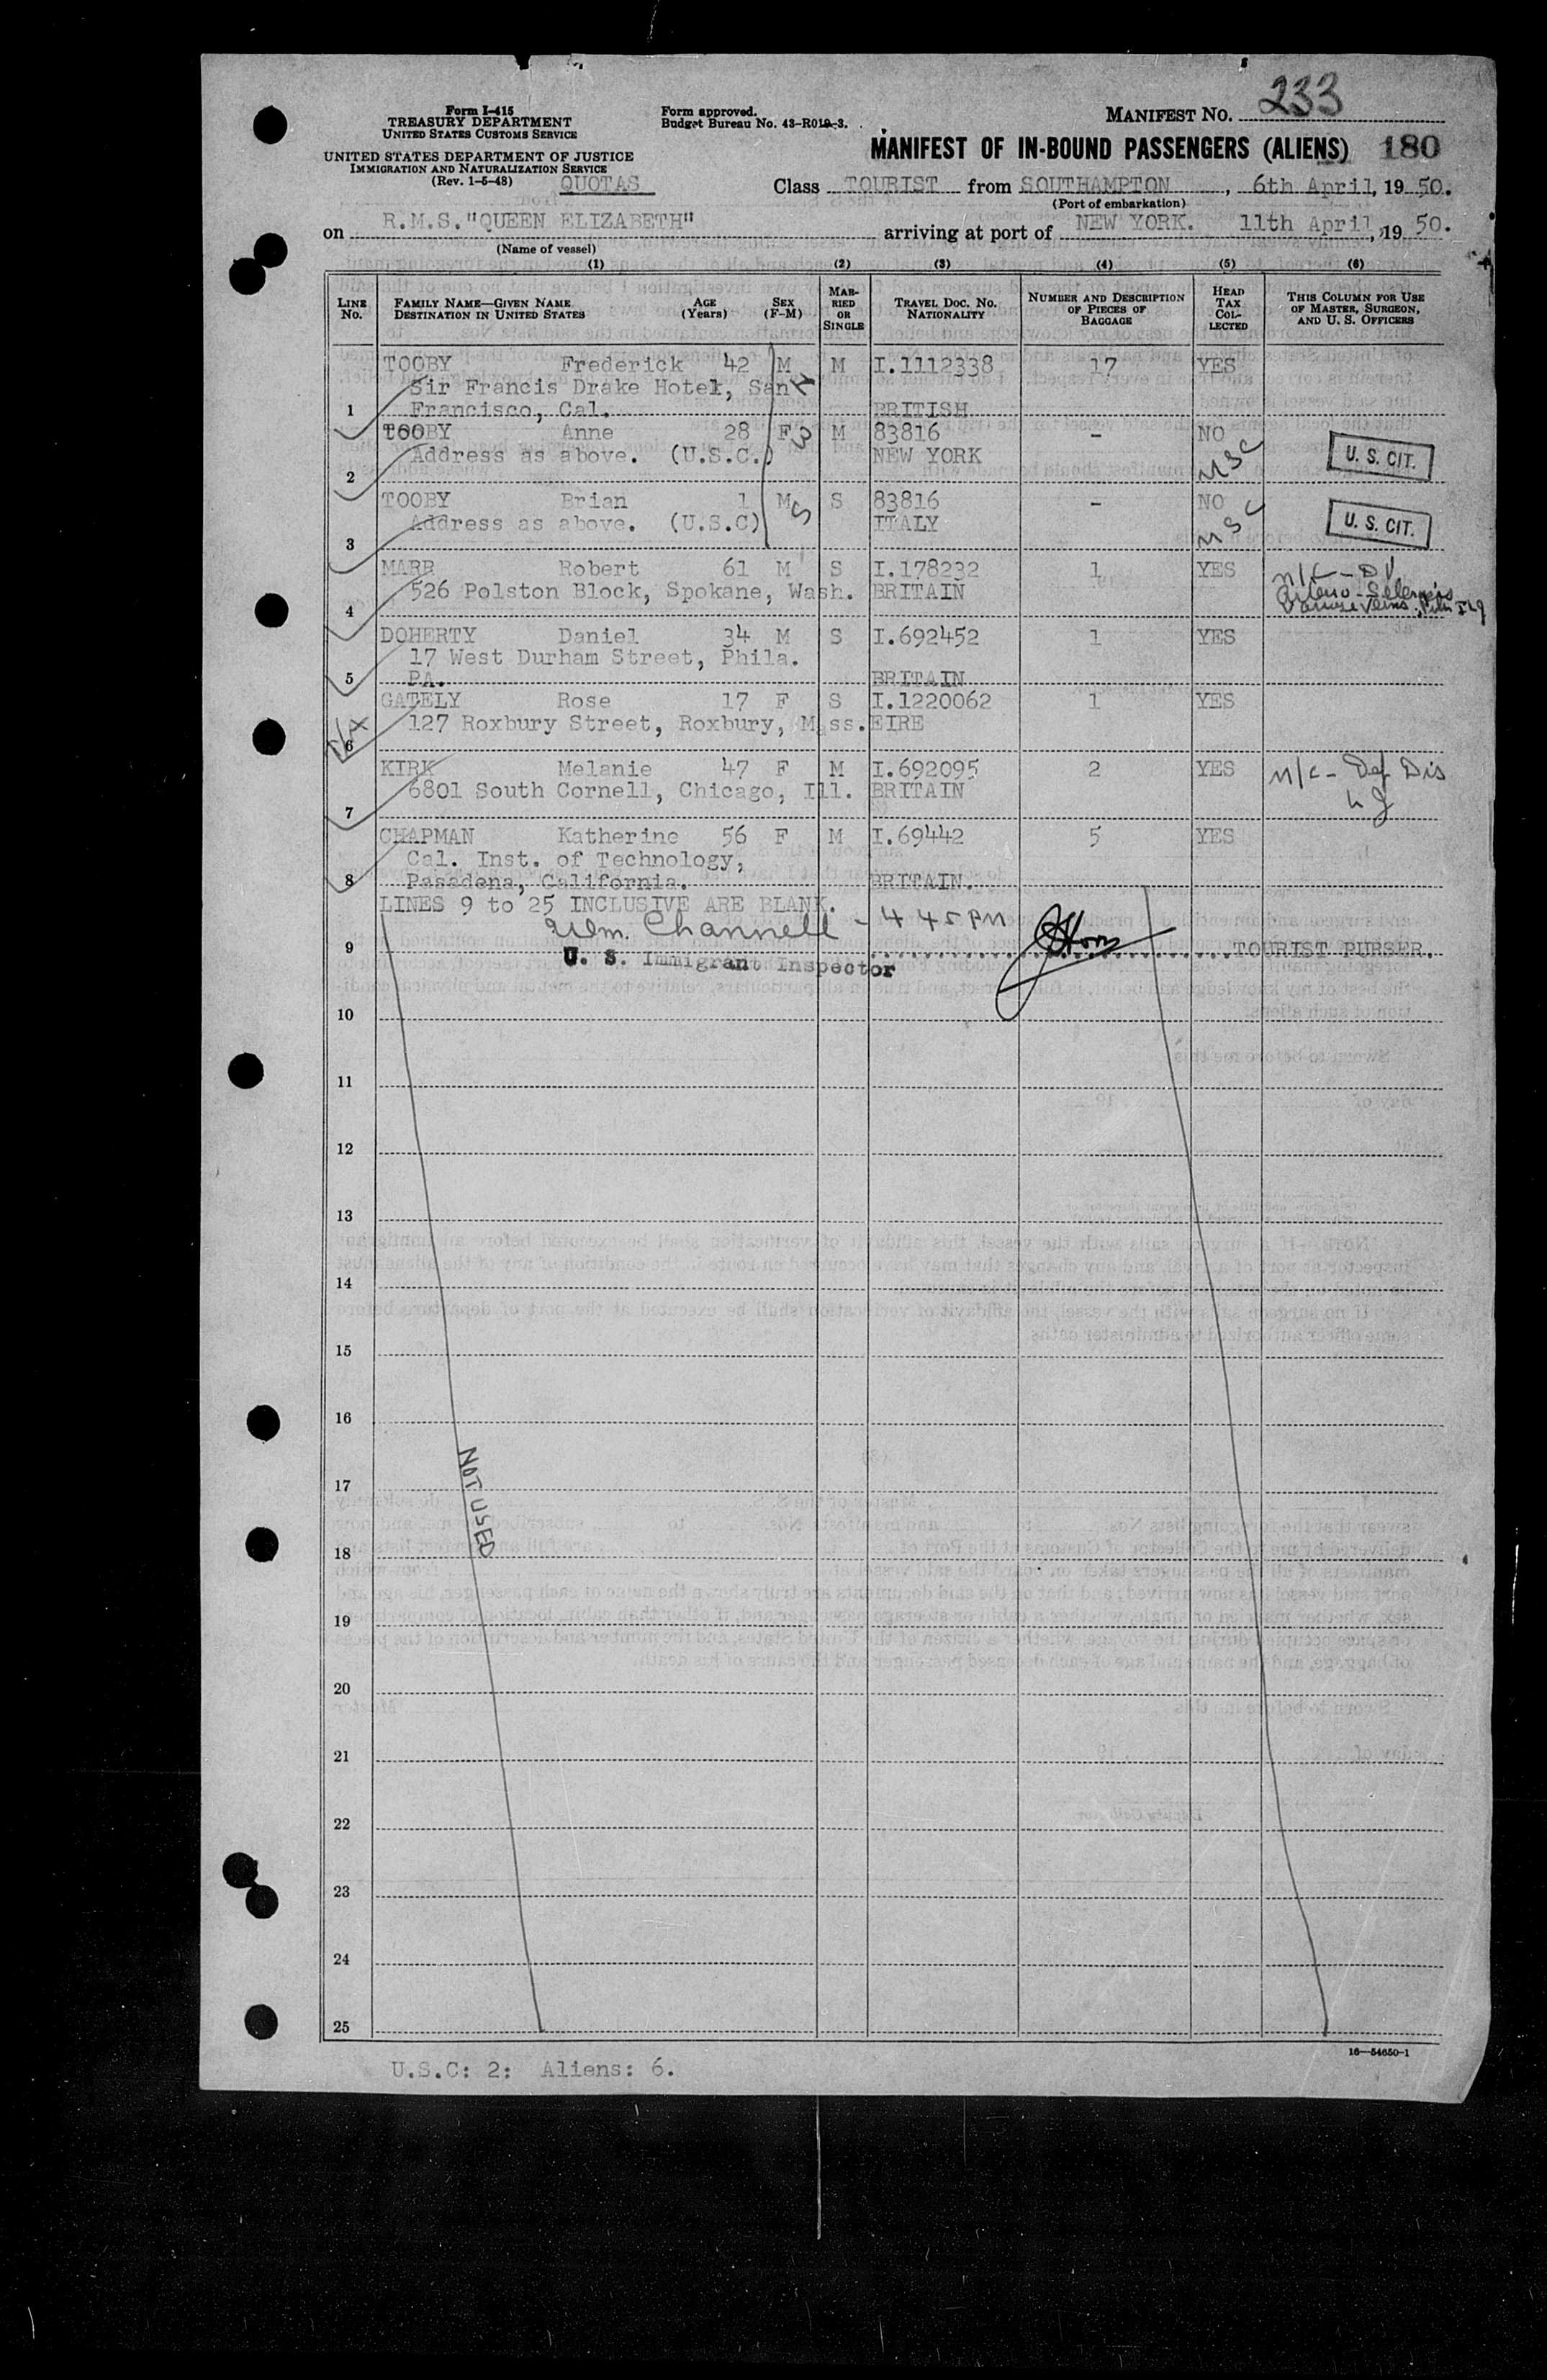 233
Form I-415
TREASURY DEPARTMENT
UNITED STATES CUSTOMS SERVICE
Form approved.
Budget Bureau No. 43-R019-3.
MANIFEST NO.
MANIFEST OF IN-BOUND PASSENGERS (ALIENS) 180
UNITED STATES DEPARTMENT OF JUSTICE
IMMIGRATION AND NATURALIZATION SERVICE
(Rev. 1-5-48) QUOTAS
Class TOURIST from SOUTHAMPTON, 6th April, 19 50.
(Port of embarkation)
on R.M.S."QUEEN ELIZABETH" arriving at port of NEW YORK. 11th April, 19 50.
(Name of vessel)
(1) (2) (3) (4) (5) (6)
LINE NO. FAMILY NAME—GIVEN NAME DESTINATION IN UNITED STATES AGE (Years) SEX (F-M) MARRIED OR SINGLE TRAVEL DOC. NO. NATIONALITY NUMBER AND DESCRIPTION OF PIECES OF BAGGAGE HEAD TAX COLLECTED THIS COLUMN FOR USE OF MASTER, SURGEON, AND U. S. OFFICERS
TOOBY Frederick 42 M M I.1112338 17 YES
Sir Francis Drake Hotel, San
1 Francisco, Cal. BRITISH
TOOBY Anne 28 F M 83816 - NO
Address as above. (U.S.C.) NEW YORK USC U. S. CIT.
2
TOOBY Brian 1 M S 83816 - NO
Address as above. (U.S.C) ITALY USC U. S. CIT.
3
MARR Robert 61 M S I.178232 1 YES n/c - DV
526 Polston Block, Spokane, Wash. BRITAIN
4
DOHERTY Daniel 34 M S I.692452 1 YES
17 West Durham Street, Phila.
5 PA. BRITAIN
GATELY Rose 17 F S I.1220062 1 YES
127 Roxbury Street, Roxbury, Mass. EIRE
6
KIRK Melanie 47 F M I.692095 2 YES n/c - Def Dis
6801 South Cornell, Chicago, Ill. BRITAIN
7
CHAPMAN Katherine 56 F M I.69442 5 YES
Cal. Inst. of Technology,
8 Pasadena, California. BRITAIN.
LINES 9 to 25 INCLUSIVE ARE BLANK.
Wm. Channell - 4 45 PM
9 TOURIST PURSER.
U. S. Immigrant Inspector
10
11
12
13
14
15
16
17
NOT USED
18
19
20
21
22
23
24
25
16—54650-1
U.S.C: 2: Aliens: 6.